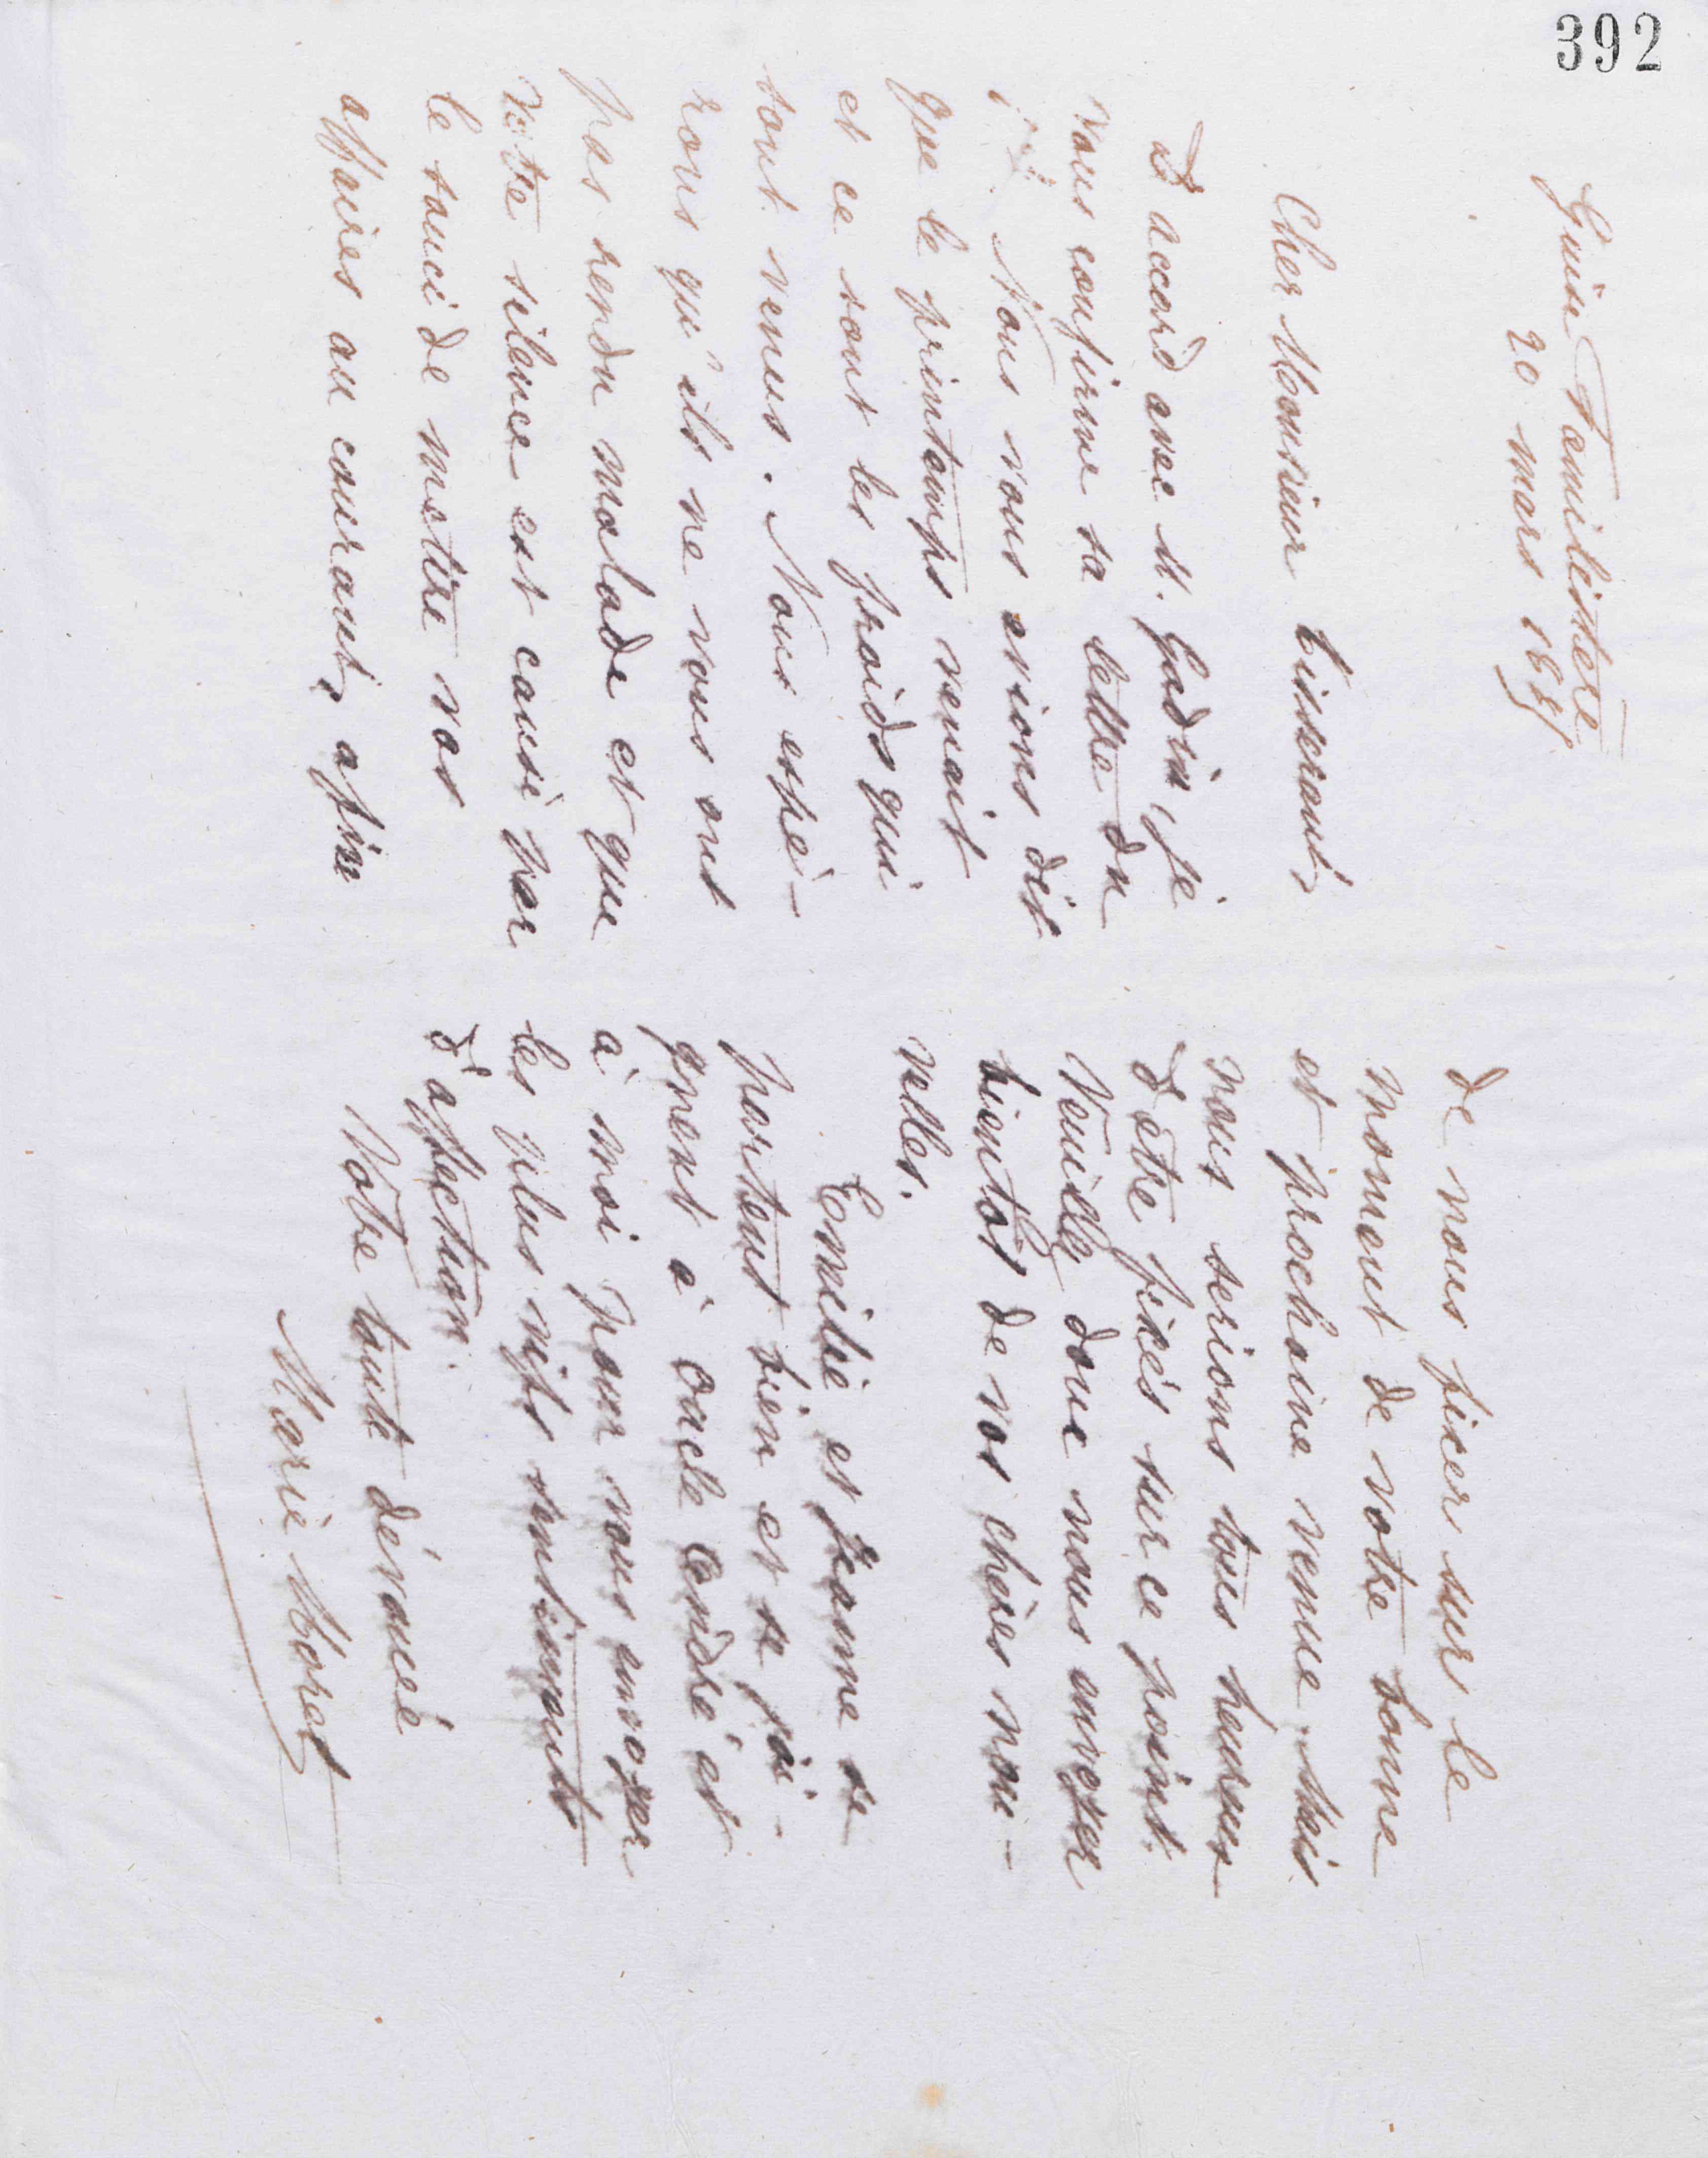 392
Guise Familistère
20 mars 1881
Cher Monsieur Tisserant,
D'accord avec M. Godin, je
vous confirme sa lettre du
Nous vous avions dit
que le printemps venait
et ce sont les froids qui
sont venus. Nous espé-
rons qu'ils ne vous ont
pas rendu malade et que
votre silence est causé par
le souci de mettre vos
affaires au courant, afin
de nous fixer sur le
moment de votre bonne
et prochaine venue. Mais
nous serions tous heureux
d'être fixés sur ce point.
Veuillez donc nous envoyer
bientôt de vos chères nou-
velles.
Emilie et Jeanne se
portent bien et se joi-
gnent à oncle André et
à moi pour vous envoyer
les plus vifs sentiments
d'affection.
Votre toute dévouée
Marie Moret